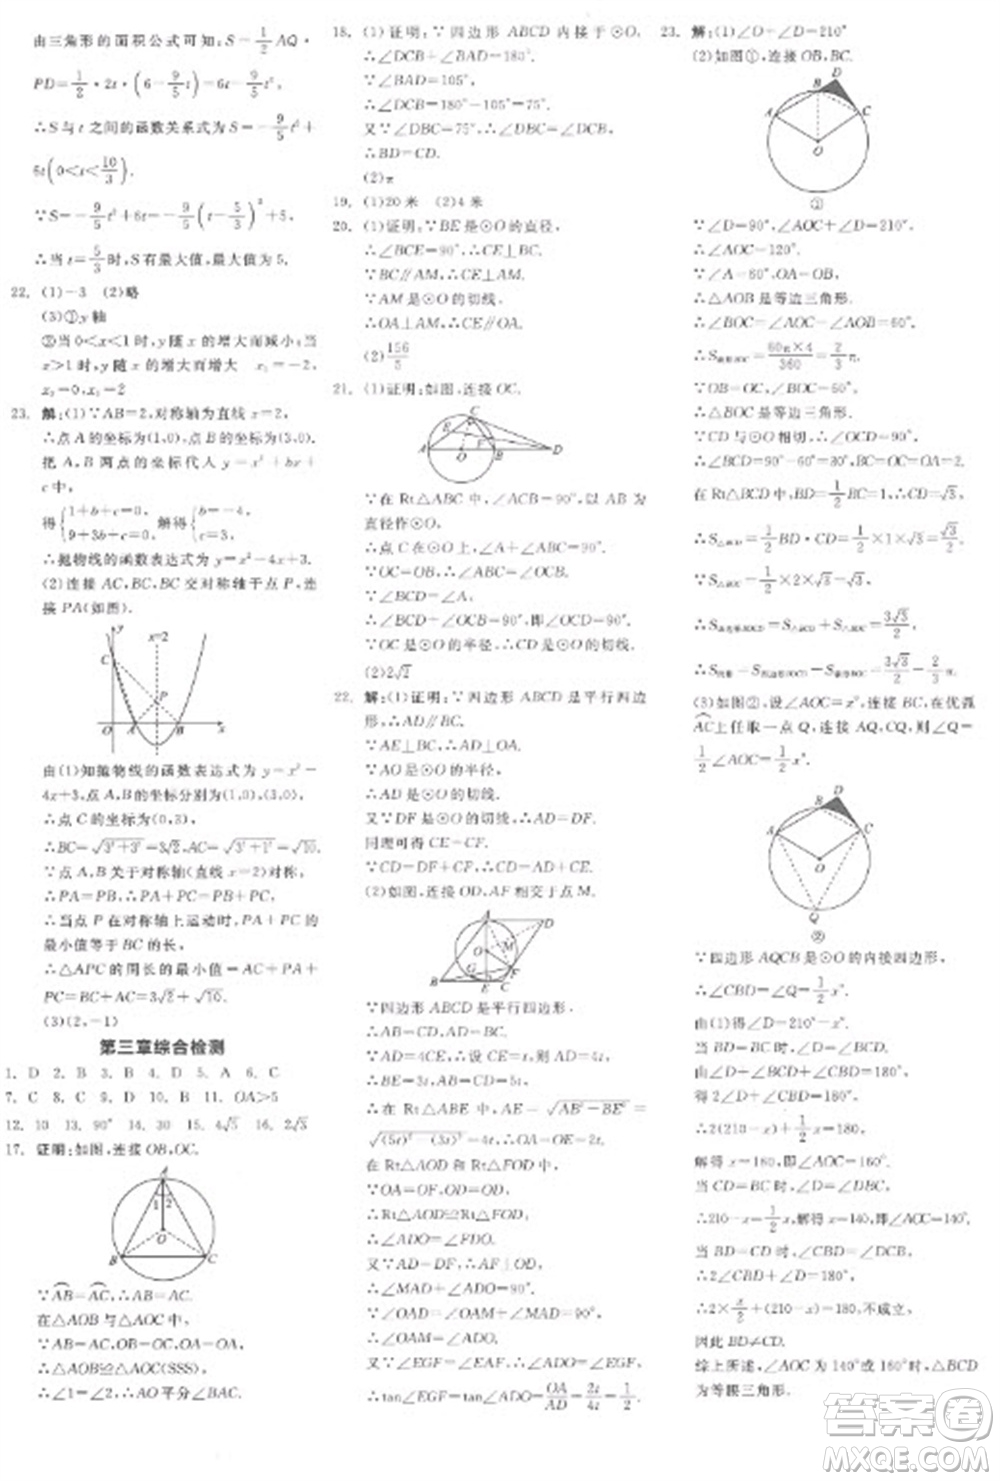 由三角形的面积公式可知:S=1/2 AQ·
PD=1/2·2t·(6-9/5 t)=6t-9/5 t².
∴S与t之间的函数关系式为S=-9/5 t²+
6t(0<t<10/3).
∵S=-9/5 t²+6t=-9/5(t-5/3)²+5,
∴当t=5/3时,S有最大值,最大值为5.
22. (1)-3 (2)略
(3)①y轴
②当0<x<1时,y随x的增大而减小;当
x>1时,y随x的增大而增大
x₂=0,x₃=2
23. 解:(1)∵AB=2,对称轴为直线x=2,
∴点A的坐标为(1,0),点B的坐标为(3,0).
把A,B两点的坐标代入y=x²+bx+
c中,
得{1+b+c=0, 9+3b+c=0, 解得{b=-4, c=3,
∴抛物线的函数表达式为y=x²-4x+3.
(2)连接AC,BC,BC交对称轴于点P,连
接PA(如图).
y
x=2
C
P
O A B x
由(1)知抛物线的函数表达式为y=x²-
4x+3,点A,B的坐标分别为(1,0),(3,0),
∴点C的坐标为(0,3),
∴BC=√(3²+3²)=3√2,AC=√(3²+1²)=√10.
∵点A,B关于对称轴(直线x=2)对称,
∴PA=PB,∴PA+PC=PB+PC.
∴当点P在对称轴上运动时,PA+PC的
最小值等于BC的长,
∴△APC的周长的最小值=AC+PA+
PC=BC+AC=3√2+√10.
(3)(2,-1)
第三章综合检测
1. D 2. B 3. B 4. D 5. A 6. C
7. C 8. C 9. D 10. B 11. OA>5
12. 10 13. 90° 14. 30 15. 4√3 16. 2√3
17. 证明:如图,连接OB,OC.
A
1 2
O
B C
∵AB=AC,∴AB=AC.
在△AOB与△AOC中,
∵AB=AC,OB=OC,OA=OA,
∴△AOB≌△AOC(SSS),
∴∠1=∠2,∴AO平分∠BAC.
18. (1)证明:∵四边形ABCD内接于⊙O,
∴∠DCB+∠BAD=180°.
∵∠BAD=105°,
∴∠DCB=180°-105°=75°.
又∵∠DBC=75°,∴∠DBC=∠DCB,
∴BD=CD.
(2)π
19. (1)20米 (2)4米
20. (1)证明:∵BE是⊙O的直径,
∴∠BCE=90°,∴CE⊥BC.
∵BC∥AM,∴CE⊥AM.
∵AM是⊙O的切线,
∴OA⊥AM,∴CE∥OA.
(2)156/5
21. (1)证明:如图,连接OC.
C
E F
A O B D
∵在Rt△ABC中,∠ACB=90°,以AB为
直径作⊙O,
∴点C在⊙O上,∠A+∠ABC=90°.
∵OC=OB,∴∠OCB=∠OBC.
∵∠BCD=∠A,
∴∠BCD+∠OCB=90°,即∠OCD=90°.
∵OC是⊙O的半径,∴CD是⊙O的切线.
(2)2√2
22. 解:(1)证明:∵四边形ABCD是平行四边
形,∴AD∥BC.
∵AE⊥BC,∴AE⊥AD.
∵AO是⊙O的半径,
∴AD是⊙O的切线.
又∵DF是⊙O的切线,∴AD=DF.
同理可得CE=CF.
∵CD=DF+CF,∴CD=AD+CE.
(2)如图,连接OD,AF相交于点M.
A D
O M
G F
B E C
∵四边形ABCD是平行四边形,
∴AB=CD,AD=BC.
∴在Rt△ABE中,AE=√(AB²-BE²)=
√((5t)²-(3t)²)=4t,∴OA=OE=2t.
在Rt△AOD和Rt△FOD中,
∵OA=OF,OD=OD,
∴Rt△AOD≌Rt△FOD,
∵AD=DF,∴AF⊥OD,
∴∠MAD+∠ADO=90°.
∵∠OAD=∠OAM+∠MAD=90°,
∴∠OAM=∠ADO.
又∵∠EGF=∠EAF,∴∠EGF=∠ADO,
∴tan∠EGF=tan∠ADO=OA/AD=2t/4t=1/2.
23. 解:(1)∠D+∠O=210°
(2)如图①,连接OB,BC.
B D
A C
O
①
∵∠D=90°,∠AOC+∠D=210°,
∴∠AOC=120°.
∵∠A=60°,OA=OB,
∴△AOB是等边三角形.
∴∠BOC=∠AOC-∠AOB=60°,
∴S扇形BOC=60π×4/360=2/3 π.
∵OB=OC,∠BOC=60°,
∴△BOC是等边三角形.
∵CD与⊙O相切,∴∠OCD=90°,
∴∠BCD=90°-60°=30°,BC=OC=2.
在Rt△BCD中,BD=1/2 BC=1,∴CD=√3,
∴S△BCD=1/2 BD·CD=1/2×1×√3=√3/2,
∴S△BOC=1/2×2×√3=√3,
∴S四边形BOCD=S△BCD+S△BOC=3√3/2,
∴S阴影=S四边形BOCD-S扇形BOC=3√3/2-2/3 π.
(3)如图②,设∠AOC=x°,连接BC,在优弧
AC上任取一点Q,连接AQ,CQ,则∠Q=
1/2∠AOC=1/2 x°.
B D
A C
O
Q
②
∵四边形AQCB是⊙O的内接四边形,
∴∠CBD=∠Q=1/2 x°.
由(1)得∠D=210°-x°.
当BD=BC时,∠D=∠BCD.
由∠D+∠BCD+∠CBD=180°,
∴2(210-x)+1/2 x=180,
解得x=160,即∠AOC=160°.
当CD=BC时,∠D=∠CBD,
∴210-x=1/2 x,解得x=140,即∠AOC=140°.
当BD=CD时,
∴2∠CBD+∠D=180°,
∴2×x/2+(210-x)=180,不成立,
因此BD≠CD.
综上所述,∠AOC为140°或160°时,△BCD
为等腰三角形.
答案圈
MXQE.COM